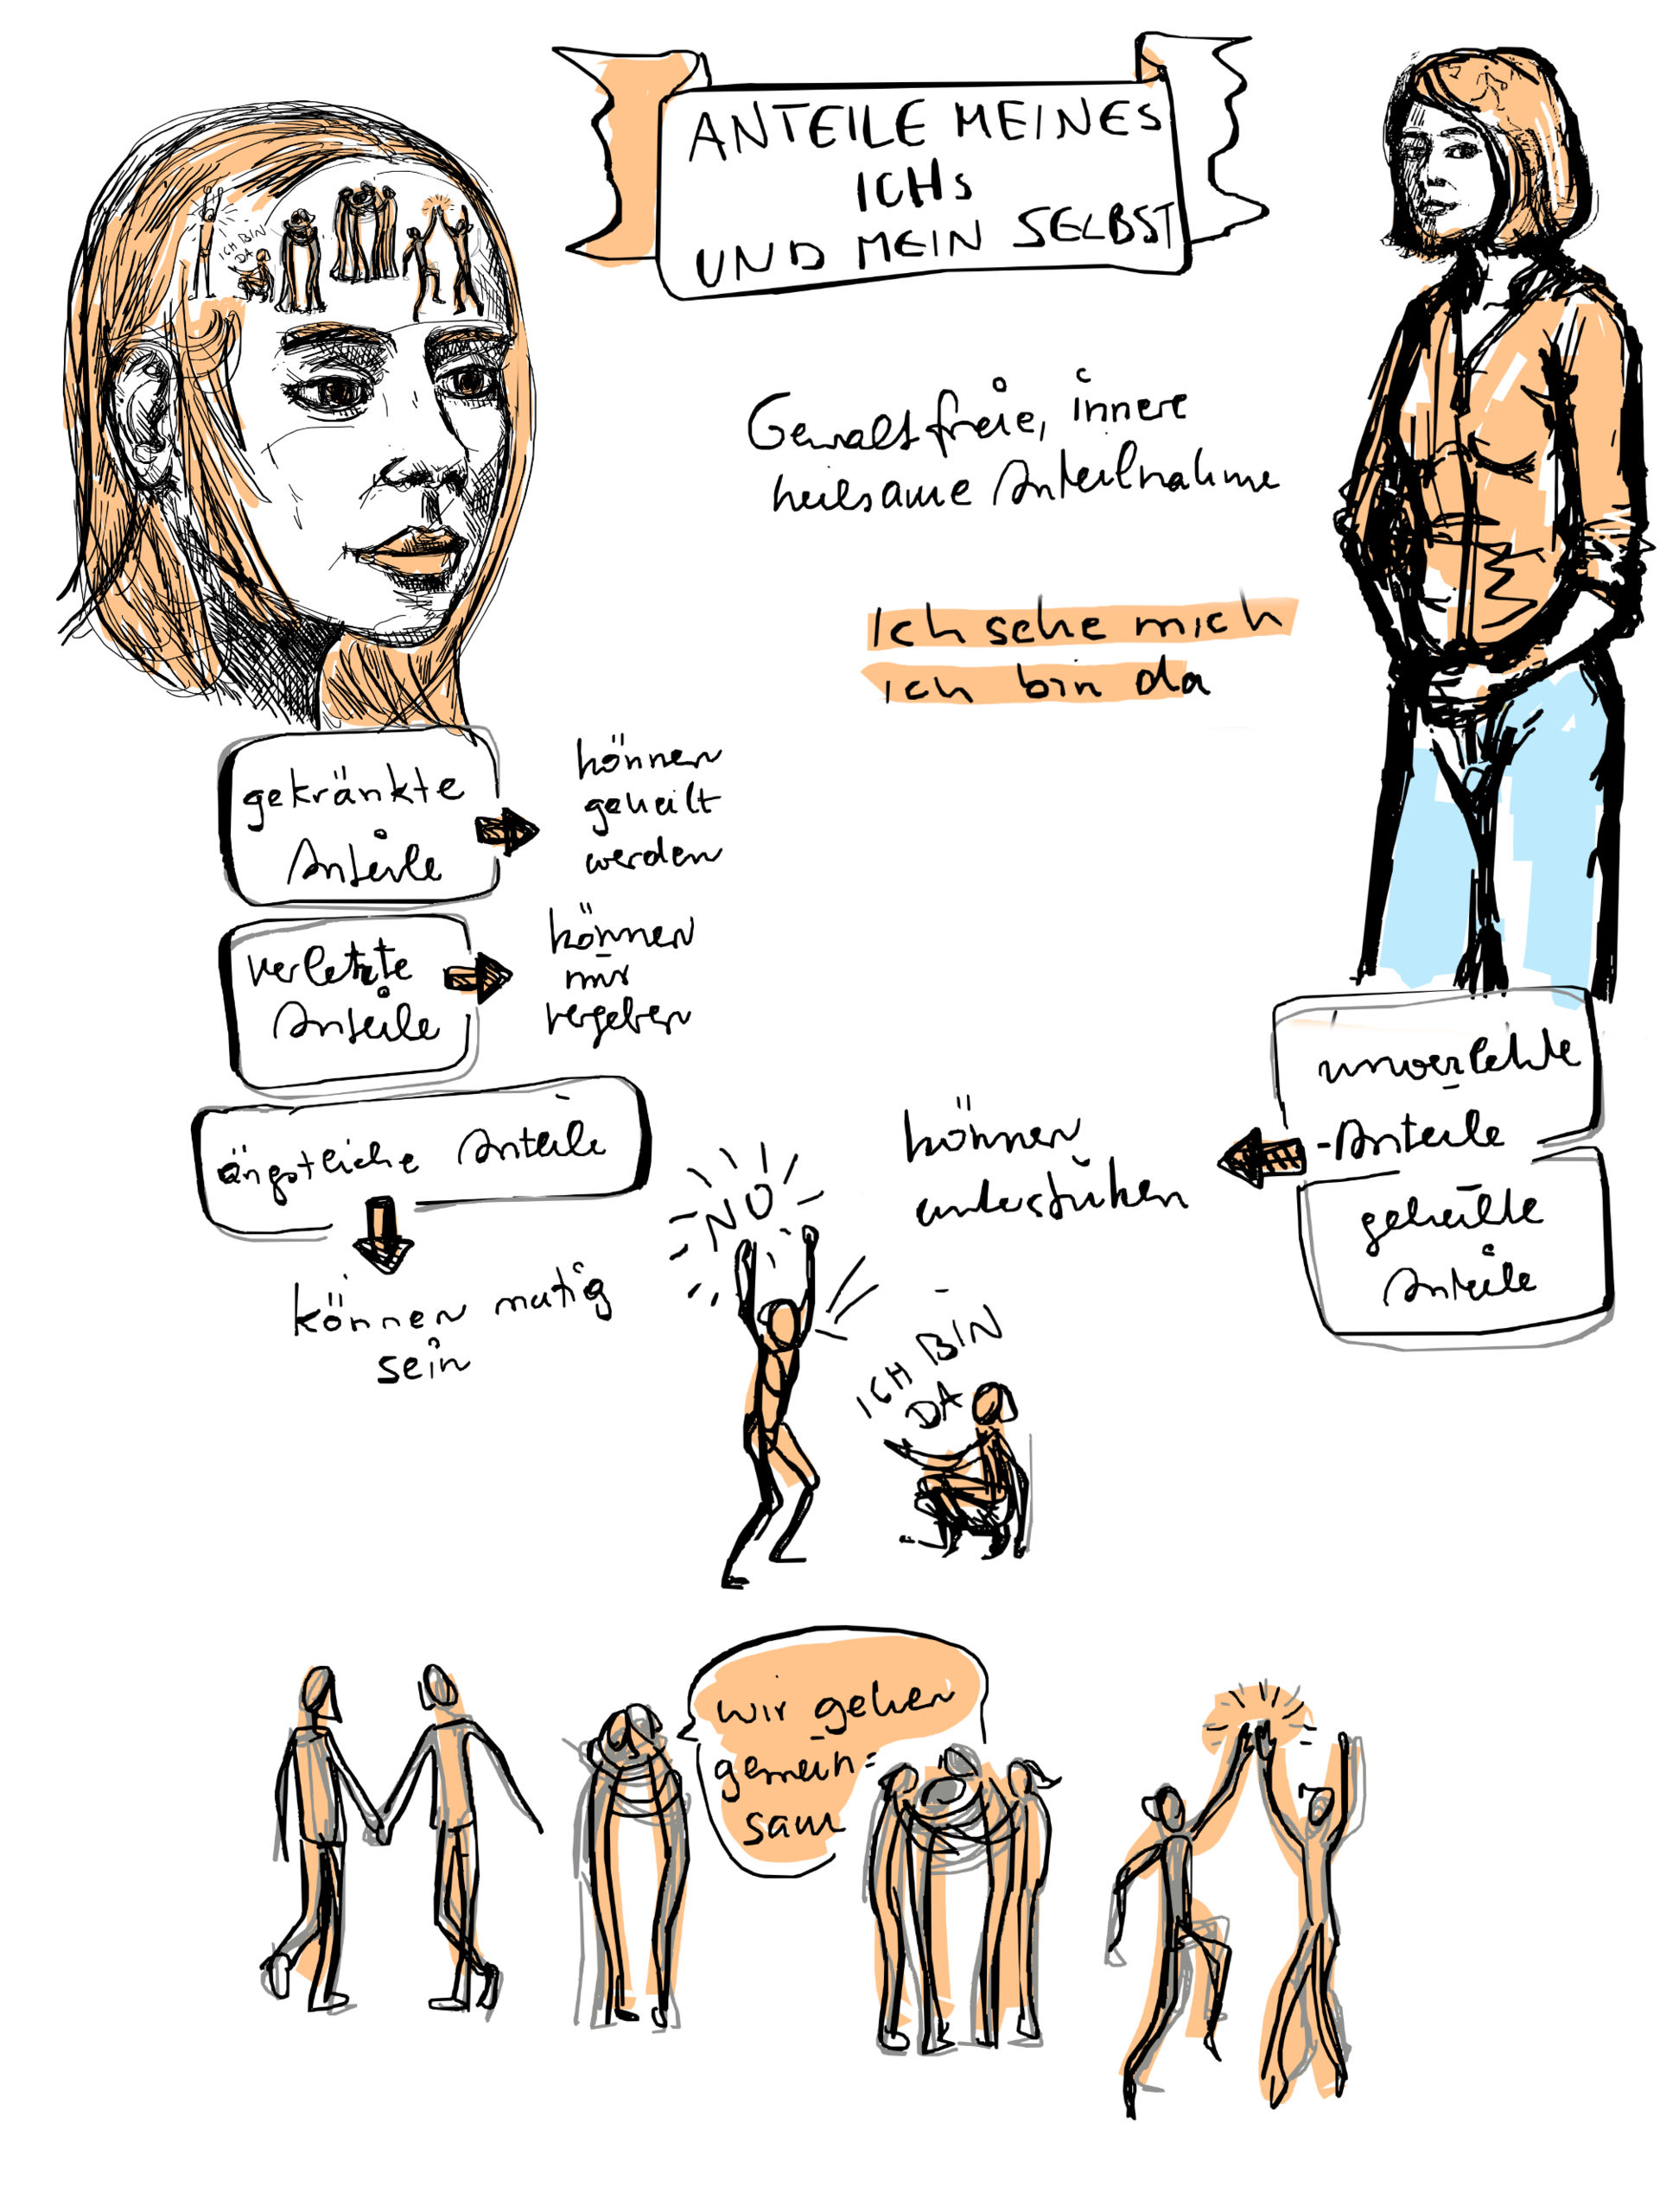 ANTEILE MEINES
ICHs
UND MEIN SELBST
ICH BIN
DA
Gewaltfreie, innere
heilsame Anteilnahme
Ich sehe mich
ich bin da
gekränkte
Anteile
können
geheilt
werden
verletzte
Anteile
können
mir
vergeben
ängstliche Anteile
können mutig
sein
unverletzte
-Anteile
geheilte
Anteile
können
unterstützen
NO
ICH BIN
DA
wir gehen
gemein=
sam